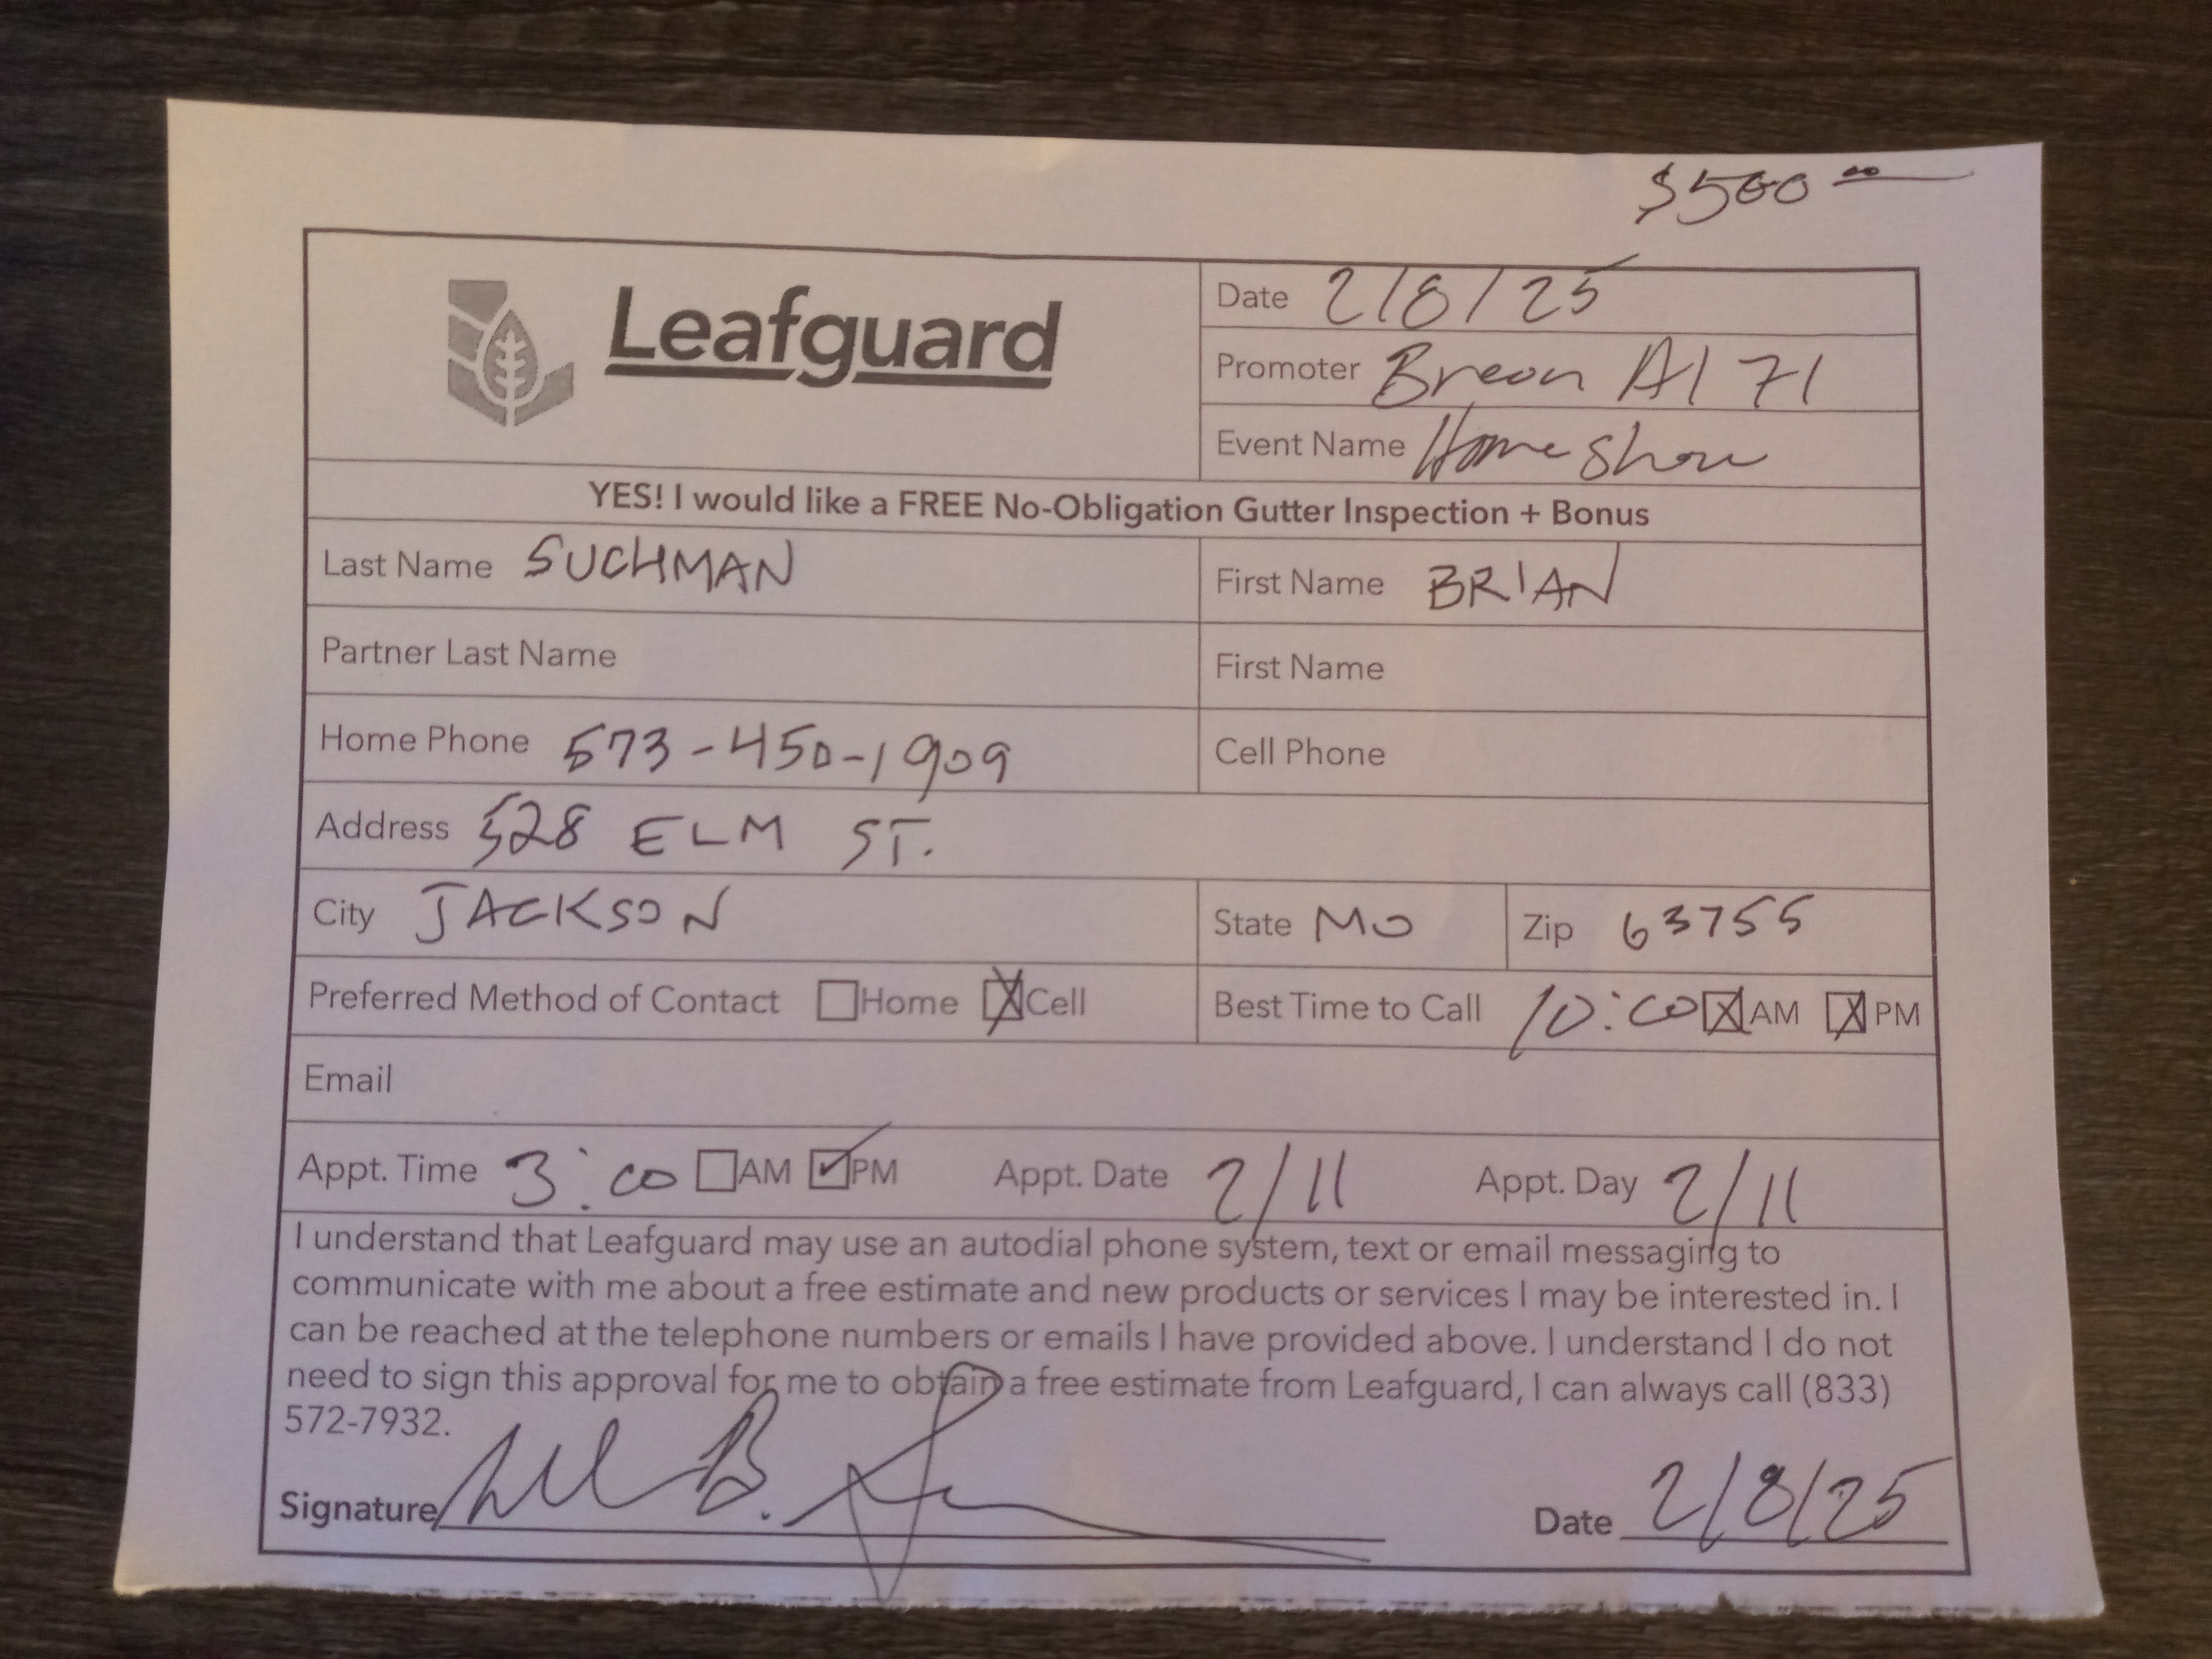 $500 00
Leafguard
Date 2/8/25
Promoter Breon A171
Event Name Home Show
YES! I would like a FREE No-Obligation Gutter Inspection + Bonus
Last Name SUCHMAN First Name BRIAN
Partner Last Name First Name
Home Phone 573-450-1909 Cell Phone
Address 528 ELM ST.
City JACKSON State MO Zip 63755
Preferred Method of Contact Home Cell Best Time to Call 10:00 AM PM
Email
Appt. Time 3:00 AM PM Appt. Date 2/11 Appt. Day 2/11
I understand that Leafguard may use an autodial phone system, text or email messaging to
communicate with me about a free estimate and new products or services I may be interested in. I
can be reached at the telephone numbers or emails I have provided above. I understand I do not
need to sign this approval for me to obtain a free estimate from Leafguard, I can always call (833)
572-7932.
Signature Date 2/8/25